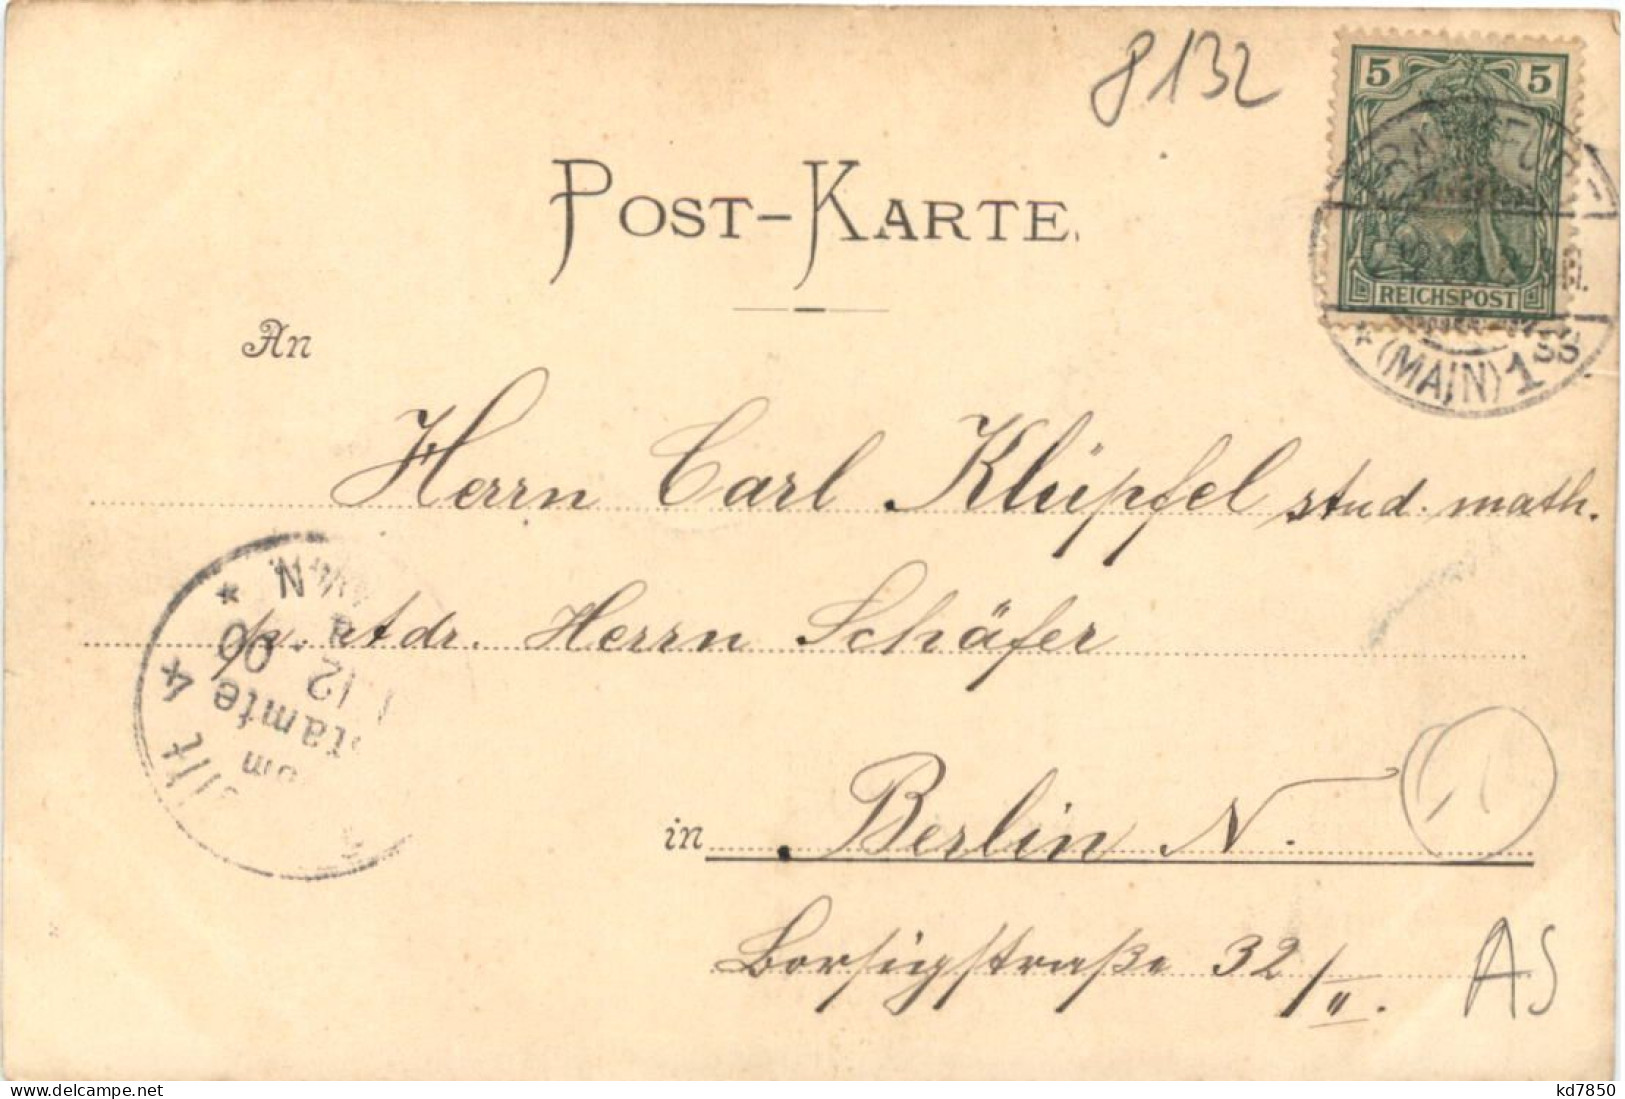 8132
5 5
REICHSPOST
FRANKFURT
* (MAIN) 1 SS
POST-KARTE.
An
Herrn Carl Klüpfel stud. math.
p. adr. Herrn Schäfer
in Berlin N.
Borsigstraße 32/II.
AS
* N
12 00
4
delcampe.net
kd7850